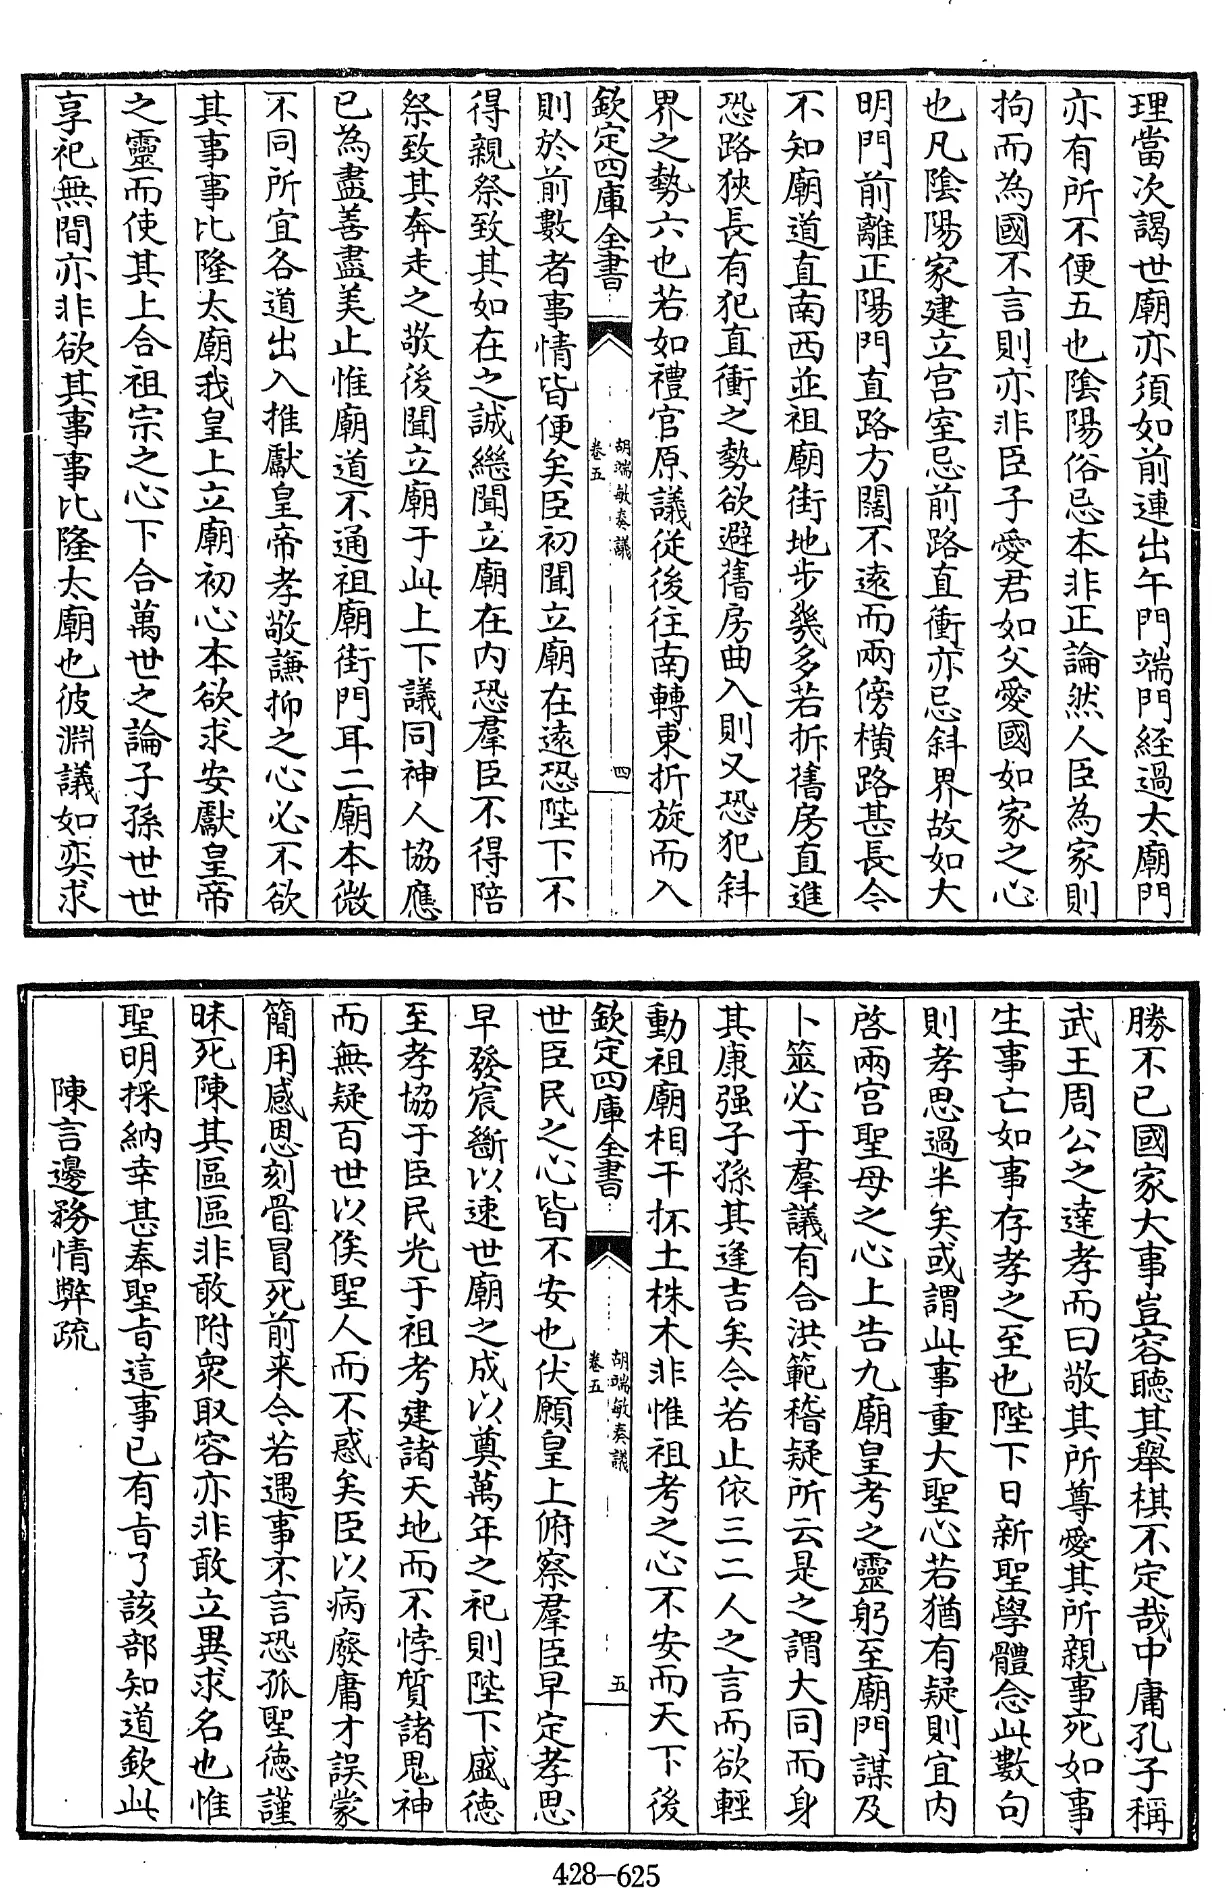 理當次謁世廟亦須如前連出午門端門經過太廟門
亦有所不便五也陰陽俗忌本非正論然人臣為家則
拘而為國不言則亦非臣子愛君如父愛國如家之心
也凡陰陽家建立宫室忌前路直衝亦忌斜界故如大
明門前離正陽門直路方闊不遠而兩傍横路甚長今
不知廟道直南西並祖廟街地步幾多若拆舊房直進
恐路狹長有犯直衝之勢欲避舊房曲入則又恐犯斜
界之勢六也若如禮官原議從後往南轉東折旋而入
欽定四庫全書
胡端敏奏議
卷五
四
則於前數者事情皆便矣臣初聞立廟在遠恐陛下不
得親祭致其如在之誠繼聞立廟在内恐羣臣不得陪
祭致其奔走之敬後聞立廟于此上下議同神人協應
已為盡善盡美止惟廟道不通祖廟街門耳二廟本微
不同所宜各道出入推獻皇帝孝敬謙抑之心必不欲
其事事比隆太廟我皇上立廟初心本欲求安獻皇帝
之靈而使其上合祖宗之心下合萬世之論子孫世世
享祀無間亦非欲其事事比隆太廟也彼淵議如奕求
勝不已國家大事豈容聽其舉棋不定哉中庸孔子稱
武王周公之達孝而曰敬其所尊愛其所親事死如事
生事亡如事存孝之至也陛下日新聖學體念此數句
則孝思過半矣或謂此事重大聖心若猶有疑則宜内
啓兩宫聖母之心上告九廟皇考之靈躬至廟門謀及
卜筮必于羣議有合洪範稽疑所云是之謂大同而身
其康强子孫其逢吉矣今若止依三二人之言而欲輕
動祖廟相干抔土株木非惟祖考之心不安而天下後
欽定四庫全書
胡端敏奏議
卷五
五
世臣民之心皆不安也伏願皇上俯察羣臣早定孝思
早發宸斷以速世廟之成以奠萬年之祀則陛下盛德
至孝協于臣民光于祖考建諸天地而不悖質諸鬼神
而無疑百世以俟聖人而不惑矣臣以病廢庸才誤蒙
簡用感恩刻骨冒死前来今若遇事不言恐孤聖德謹
昧死陳其區區非敢附衆取容亦非敢立異求名也惟
聖明採納幸甚奉聖旨這事已有旨了該部知道欽此
陳言邊務情弊疏
428-625